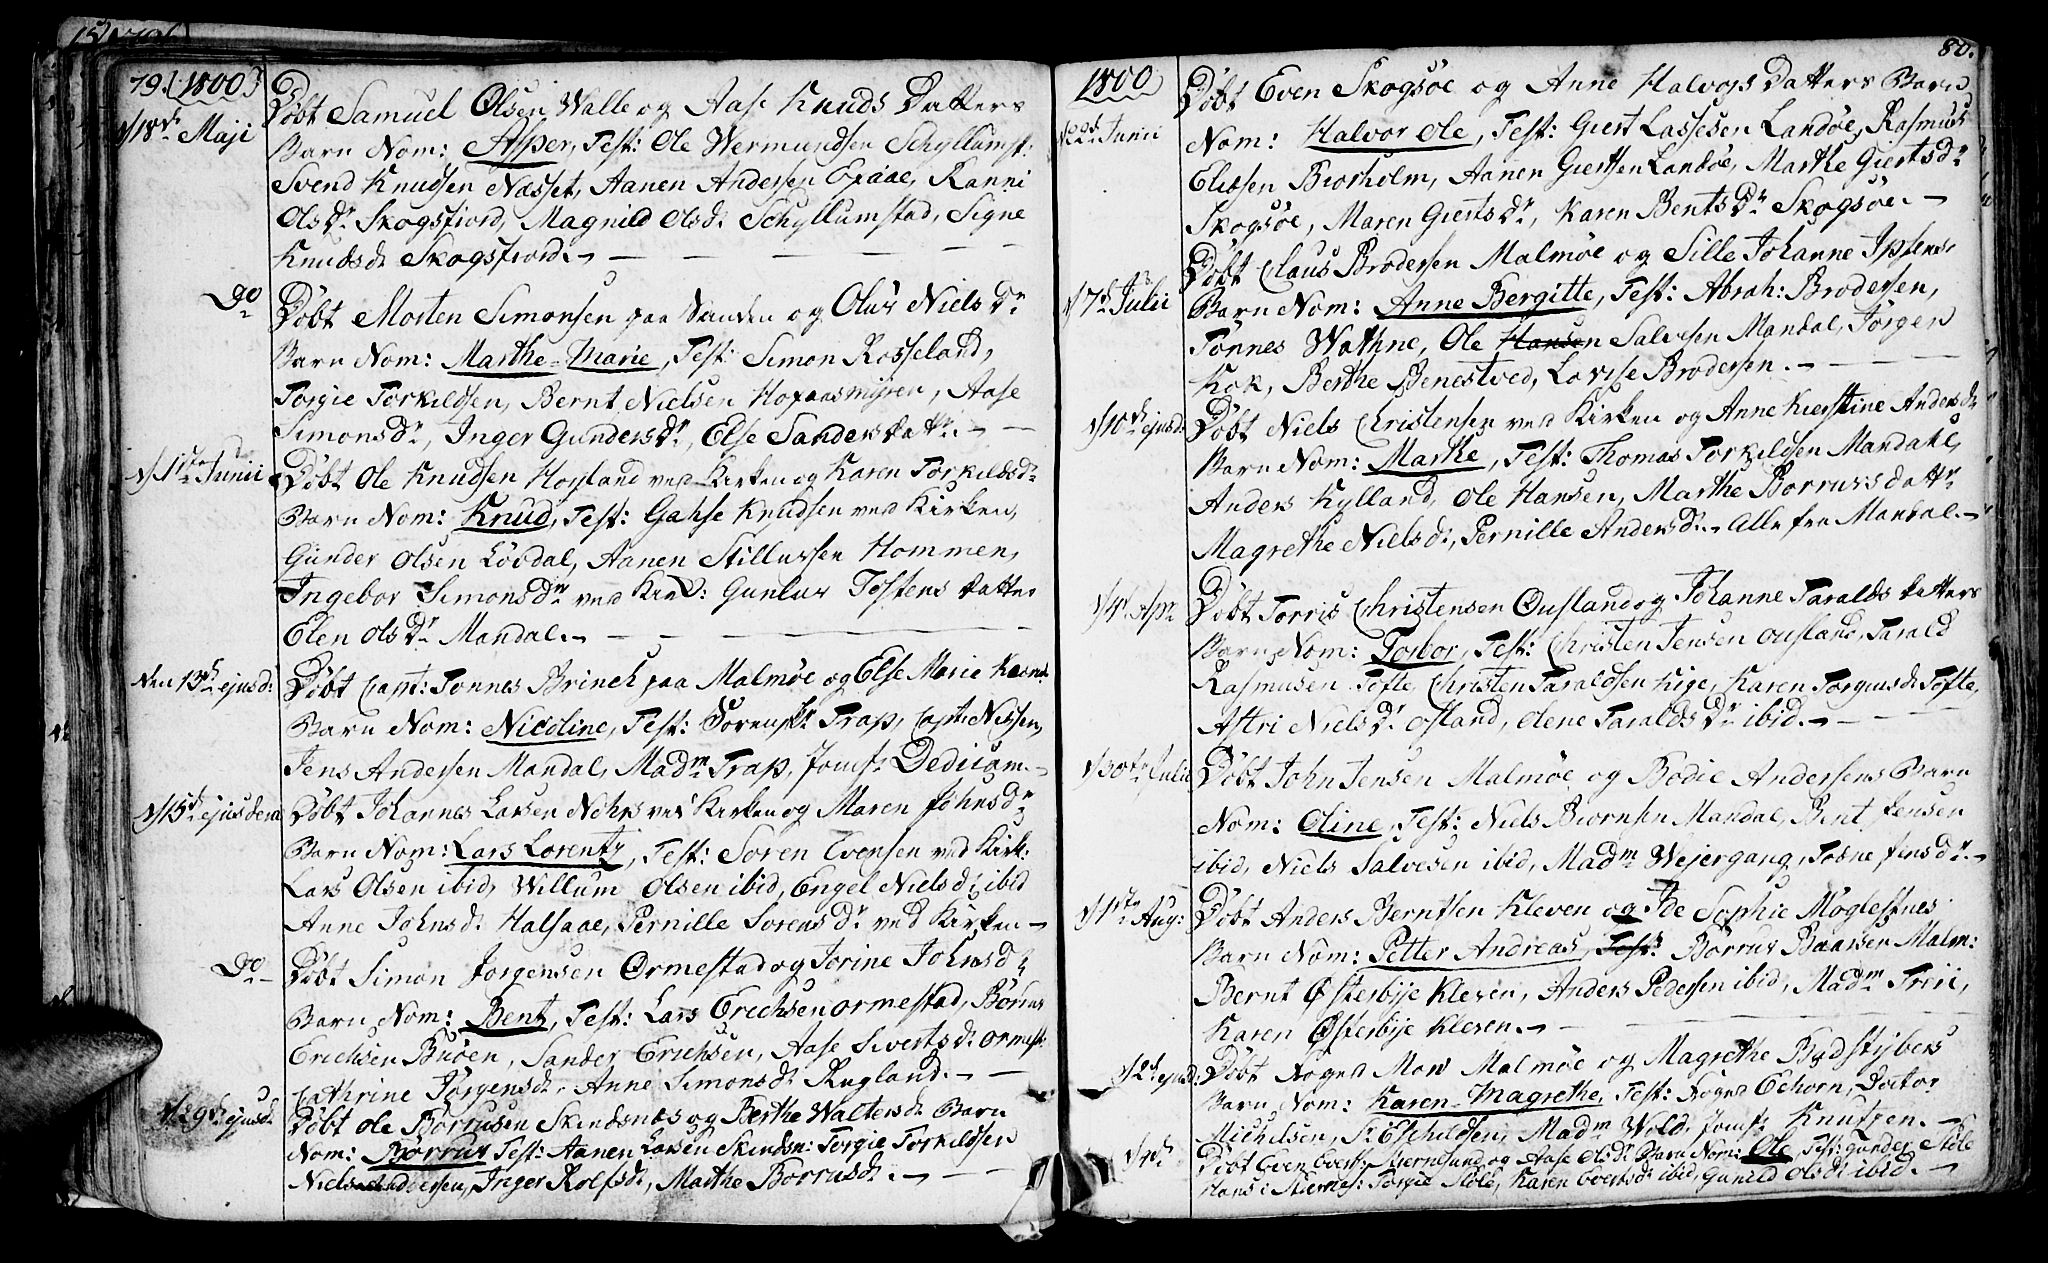 79. 1800
d/18de Maji Döbt Samuel Olsen Walle og Aase Knuds Datters
Barn Nom: Asper, Test: Ole Wermundsen Schyllumst:
Svend Knudsen Næsset, Aanen Andersen Exaae, Ranni
Olsdr Skogsfiord, Magnild Olsd. Schyllumstad, Signe
Knudsd. Skogsfiord.
Do Döbt Morten Simonsen paa Sanden og Olus Nielsdr
Barn Nom: Marthe-Marie, Test: Simon Rosseland,
Torgie Torkildsen, Bernt Nielsen Hofaasmyren, Aase
Simonsdr, Inger Gundersdr, Else Sandersdattr.
d/1te Junii Döbt Ole Knudsen Hogland ved Kirken og Karen Torkildsd.
Barn Nom: Knud, Test: Gahse Knudsen ved Kirken,
Gunder Olsen Lövdal, Aanen Stillufsen Hommen,
Ingebor Simonsdr ved Kirk: Gunlur Tostens datter
Elen Olsdr Mandal.
den 13de ejusd: Döbt Capt: Tonnes Brinch paa Malmöe og Else Marie
Barn Nom: Nicoline, Test: Sorenskr Trap, Capt: Nissen,
Jens Andersen Mandal, Madm Trap, Jomfr Dedicam.
d/15de ejusdem Döbt Johannes Larsen Nohrs ved Kirken og Maren Johnsdr
Barn Nom: Lars Lorentz, Test: Soren Evensen ved Kirk:
Lars Olsen ibid, Willum Olsen ibid, Engel Nielsd. ibid
Anne Johnsd. Halsaae, Pernille Sorensdr ved Kirken
Do Döbt Simon Jorgensen Ormestad og Jorine Johnsd.
Barn Nom: Bent, Test: Lars Erichsen Ormestad, Börrus
Erichsen Buöen, Sander Erichsen, Aase Sivertsd. Ormest:
Cathrine Jörgensd. Anne Simonsd. Rugland.
d/29de ejusd. Döbt Ole Börrusen Skindsnæs og Berthe Waltersd. Barn
Nom: Börrus Test: Aanen Larsen Skindsn: Torgie Torkildsen
Niels Andersen, Inger Rolfsd., Marthe Borrusd.
80.
1800
d/22de Junii Döbt Even Skogsöe og Anne Halvors Datters Barn
Nom: Halvor Ole, Test: Giert Lassesen Landöe, Rasmus
Eliasen Biorholm, Aanen Giertsen Landöe, Marthe Giertsdr
Skogsöe, Maren Giertsdr, Karen Bentsdr Skogsöe.
d/7de Julii Döbt Claus Brodersen Malmöe og Sille Johanne Ipsens
Barn Nom: Anne Bergitte, Test: Abrah: Brodersen,
Tönnes Wathne, Ole Hansen Salvesen Mandal, Jörgen
Kok, Berthe Benestved, Lovise Brodersen.
d/10de ejusd: Döbt Niels Christensen ved Kirken og Anne Kierstine Andersd.
Barn Nom: Marthe, Test: Thomas Torkildsen Mandahl,
Anders Kylland, Ole Hansen, Marthe Borrusdattr
Magrethe Nielsd., Pernille Andersd. Alle fra Mandal.
Döbt Torris Christensen Ousland og Johanne Taralds datters
Barn Nom: Torbor, Test: Christen Jensen Ousland, Tarald
Rasmusen Tofte, Christen Taraldsen Kige, Karen Torgiusd. Tofte,
Astri Nielsdr Osland, Olene Taraldsdr ibid.
d/30te Julii Döbt John Jensen Malmöe og Bodie Andersens Barn
Nom: Oline, Test: Niels Biornsen Mandal, Bent Jensen
ibid, Niels Salvesen ibid, Madm Wejergang, Tosne Jensdr.
d/1ste Aug: Döbt Anders Berntsen Kleven og Ide Sophie Möglestnes
Barn Nom: Petter Andreas, Test: Börrus Baarsen Malm:
Bernt Österbye Kleven, Anders Pedersen ibid, Madm Friri,
Karen Österbye Kleven.
d/2de ejusd: Döbt Rogert Mow Malmöe og Magrethe Bydstybers
Barn Nom: Karen-Magrethe, Test: Foged Echorn, Doctor
Michelsen, Sr Eschildsen, Madm Wold, Jomfr Knutzen.
d/4de Döbt Even Evertsen Stiernesund og Aase Olsd. Barn Nom: Ole, Test: Gunder Stöle
Hans i Stiernes: Torgie Stöle, Karen Evertsd. ibid, Gunild Olsd. ibid.